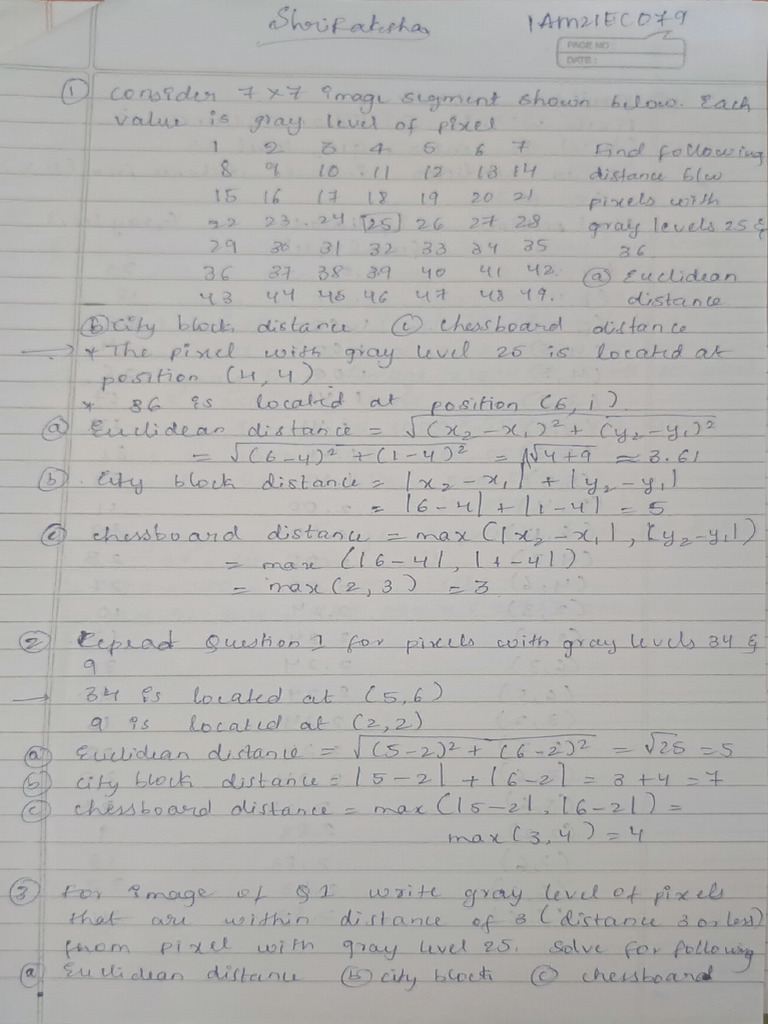 Shriraksha 1AM21EC079
PAGE NO
DATE:
① Consider 7x7 image segment shown below. Each
value is gray level of pixel
1 2 3 4 5 6 7 Find following
8 9 10 11 12 13 14 distance b/w
15 16 17 18 19 20 21 pixels with
22 23 24 [25] 26 27 28 gray levels 25 &
29 30 31 32 33 34 35 36
36 37 38 39 40 41 42. ⓐ Euclidean
43 44 45 46 47 48 49. distance
ⓑ City block distance ⓒ chessboard distance
→ * The pixel with gray level 25 is located at
position (4,4)
* 36 is located at position (6,1)
ⓐ Euclidean distance = √(x₂-x₁)² + (y₂-y₁)²
= √(6-4)² + (1-4)² = √4+9 ≈ 3.61
ⓑ City block distance = |x₂-x₁| + |y₂-y₁|
= |6-4| + |1-4| = 5
ⓒ chessboard distance = max (|x₂-x₁|, |y₂-y₁|)
= max (|6-4|, |1-4|)
= max (2,3) = 3
② Repead Question 1 for pixels with gray levels 34 &
9
→ 34 is located at (5,6)
9 is located at (2,2)
ⓐ Euclidean distance = √(5-2)² + (6-2)² = √25 = 5
ⓑ city block distance = |5-2| + |6-2| = 3+4 = 7
ⓒ chessboard distance = max (|5-2|, |6-2|) =
max (3,4) = 4
③ For image of Q1 write gray level of pixels
that are within distance of 3 (distance 3 or less)
from pixel with gray level 25. Solve for following
ⓐ Euclidean distance ⓑ city block ⓒ chessboard